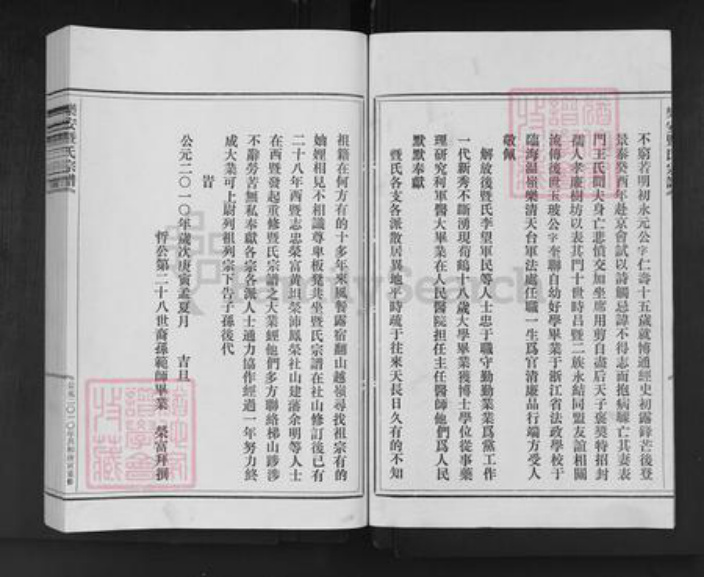 不窮若明初永元公字仁壽十五歲就博通經史初露鋒芒後登
景泰癸酉年赴京會試以詩觸忌諱不得志而抱病驟亡其妻表
門王氏聞夫身亡悲憤交加坐席用剪自盡后天子褒獎特招封
孺人孝廉樹坊以表其門十世時昌暨二族永結同盟友誼相關
流傳後世玉玻公字奎聯自幼好學畢業于浙江省法政學校于
臨海溫嶺樂清天台軍法處任職一生爲官清廉品行端方受人
敬佩
解放後暨氏李望軍民等人士忠于職守勤勤業業爲黨工作
一代新秀不斷湧現荀鶴十八歲大學畢業獲博士學位從事藥
理研究利軍醫大畢業在人民醫院担任主任醫師他們爲人民
默默奉獻
暨氏各支各派散居異地平時疏于往來天長日久有的不知
根籍在何方有的十多年來風餐露宿翻山越嶺尋找祖宗有的
妯娌相見不相識尊卑板凳共坐暨氏宗譜在社山修訂後已有
二十八年西暨志忠榮富黄垻榮沛鳳榮社山建藩余明等人士
在西暨發起重修暨氏宗譜之大業經他們多方聯絡梯山跡涉
不辭勞苦無私奉獻各宗各派人士通力協作經過一年努力終
成大業可上慰列祖列宗下告子孫後代
旹
公元二〇一〇年歲次庚寅孟夏月 吉旦
公第二十八世裔孫範師畢業 榮富拜撰
樂安暨氏宗譜
樂安暨氏宗譜
FamilySearch